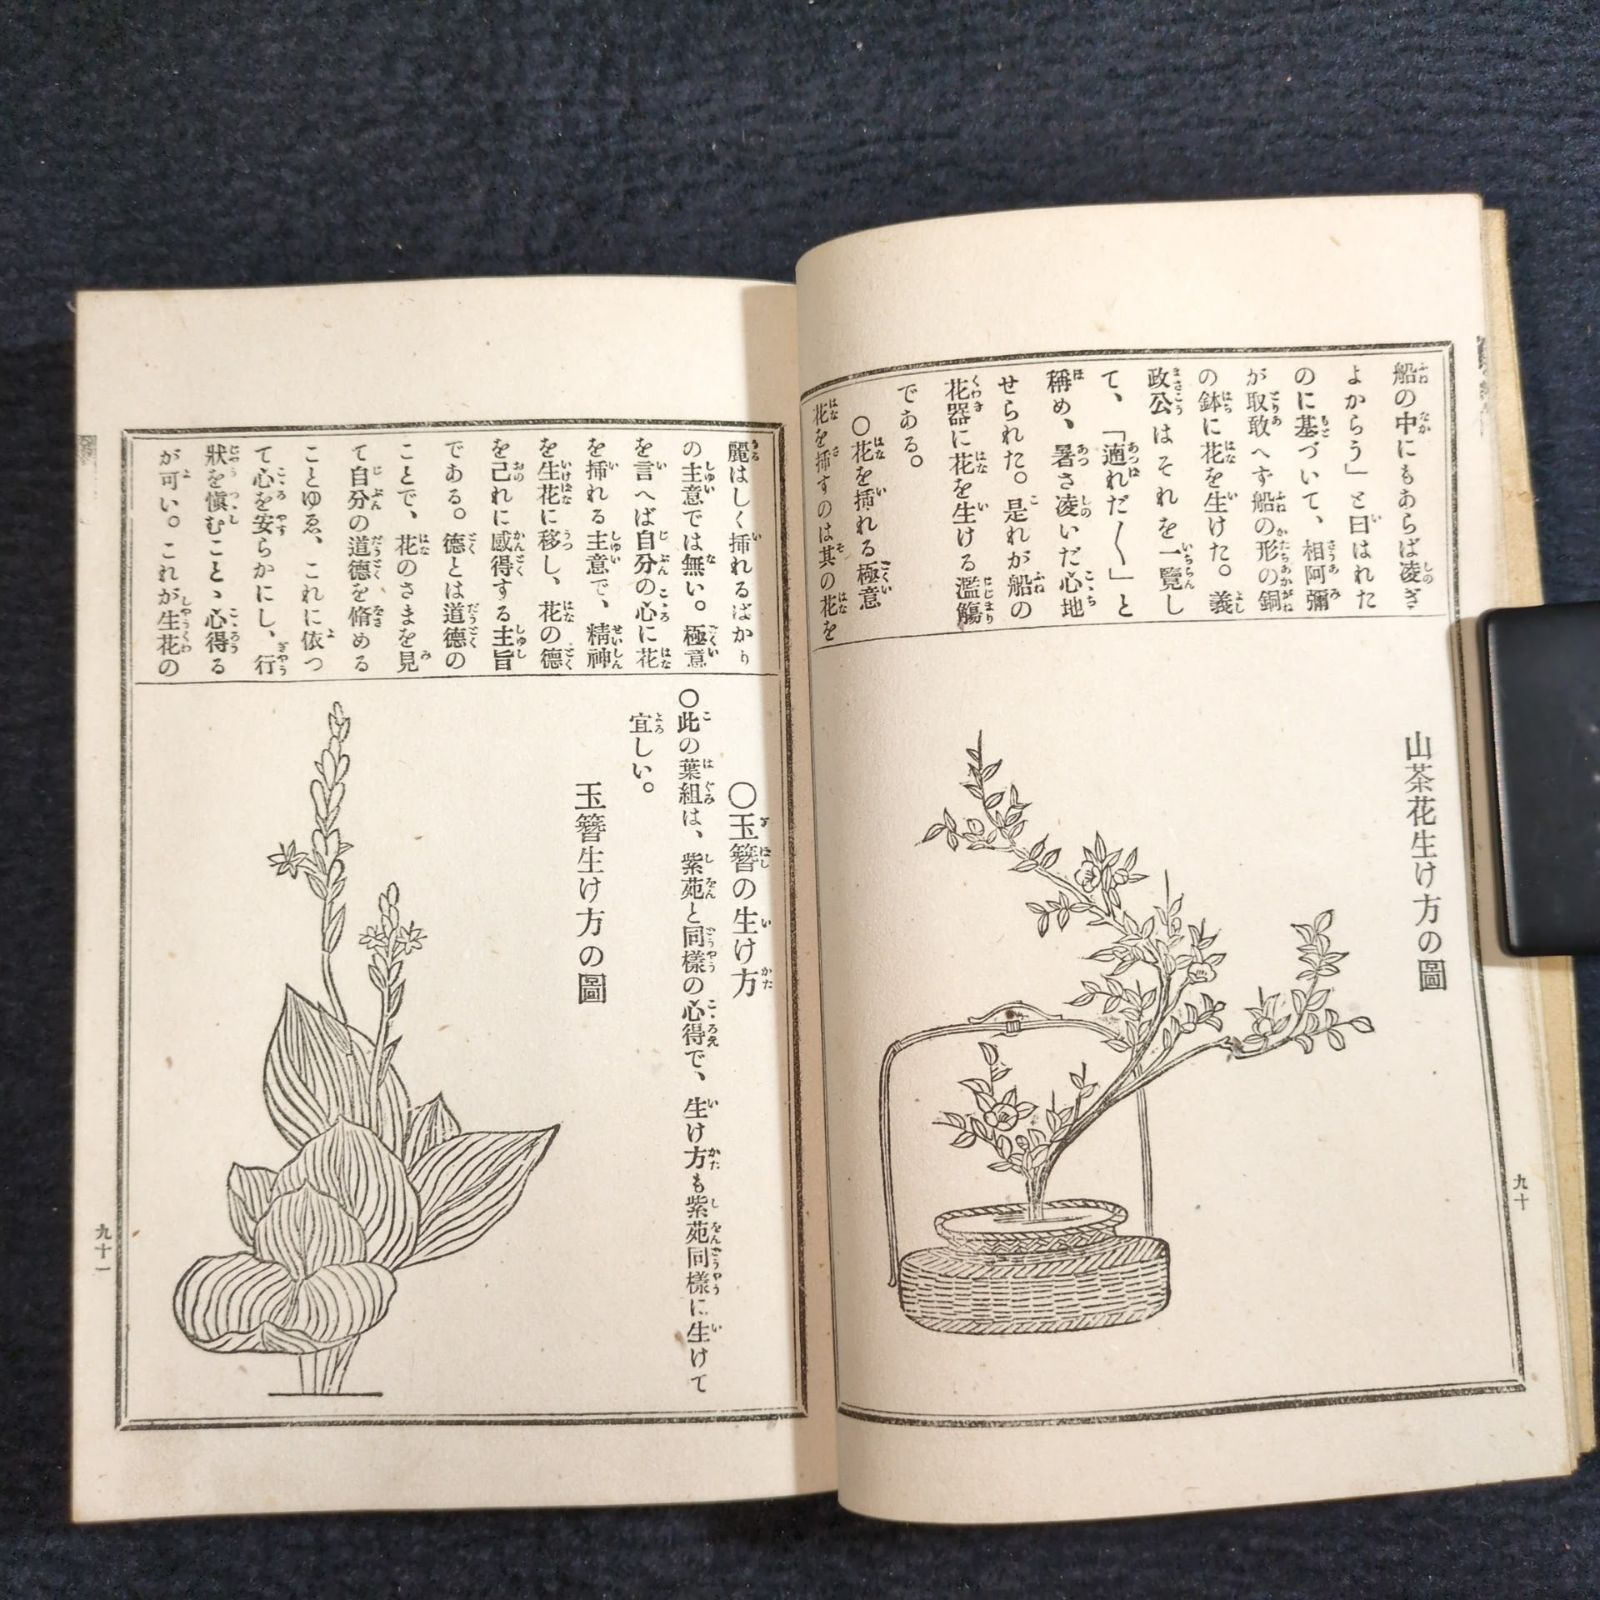 船の中にもあらば凌ぎ
よからう」と曰はれた
のに基づいて、相阿彌
が取敢へす船の形の銅
の鉢に花を生けた。義
政公はそれを一覽し
て、「遖れだ〱」と
稱め、暑さ凌いだ心地
せられた。是れが船の
花器に花を生ける濫觴
である。
○花を挿れる極意
花を挿すのは其の花を
山茶花生け方の圖
九十
麗はしく挿れるばかり
の主意では無い。極意
を言へば自分の心に花
を挿れる主意で、精神
を生花に移し、花の德
を己れに感得する主旨
である。德とは道德の
ことで、花のさまを見
て自分の道德を脩める
ことゆゑ、これに依つ
て心を安らかにし、行
狀を愼むこと、心得る
が可い。これが生花の
○玉簪の生け方
○此の葉組は、紫苑と同樣の心得で、生け方も紫苑同樣に生けて
宜しい。
玉簪生け方の圖
九十一